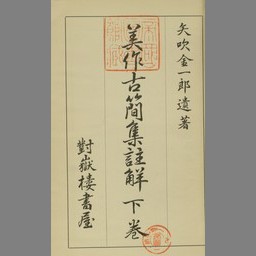 矢吹金一郎遺著
美作古簡集註解 下巻
對嶽樓書屋